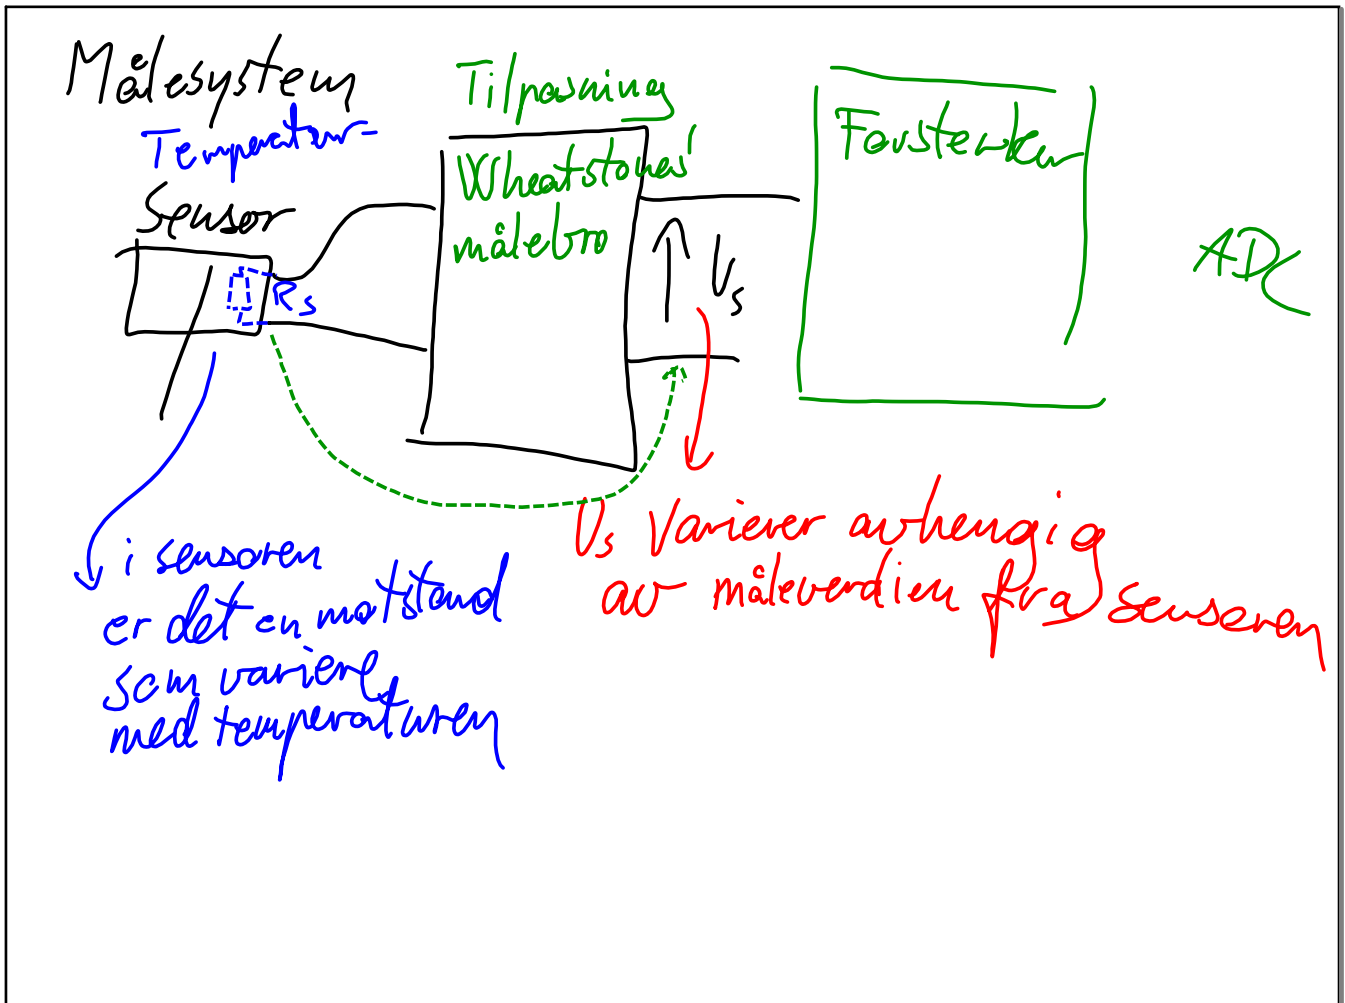 Målesystem
Temperatur-
Sensor
Rs
Tilpasning
Wheatstones'
målebro
Us
Forsterker
ADC
i sensoren
er det en motstand
som variere
med temperaturen
Us varierer avhengig
av måleverdien fra sensoren